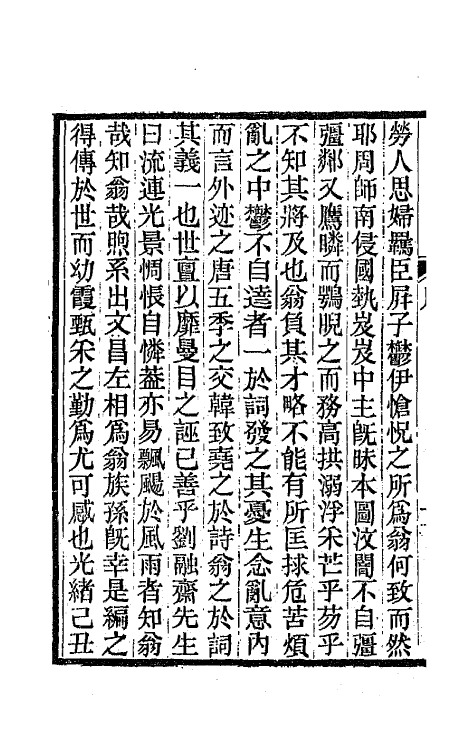 勞人思婦羈臣屛子鬱伊愴怳之所爲翁何致而然
耶周師南侵國埶岌岌中主旣昧本圖汶闇不自彊
彊鄰又鷹瞵而鶚睨之而務高拱溺浮采芒乎芴乎
不知其將及也翁負其才略不能有所匡捄危苦煩
亂之中鬱不自達者一於詞發之其憂生念亂意內
而言外迹之唐五季之交韓致堯之於詩翁之於詞
其義一也世亶以靡曼目之誣已善乎劉融齋先生
曰流連光景惆悵自憐葢亦易飄颺於風雨者知翁
哉知翁哉煦系出文昌左相爲翁族孫旣幸是編之
得傳於世而幼霞甄采之勤爲尤可感也光緒己丑